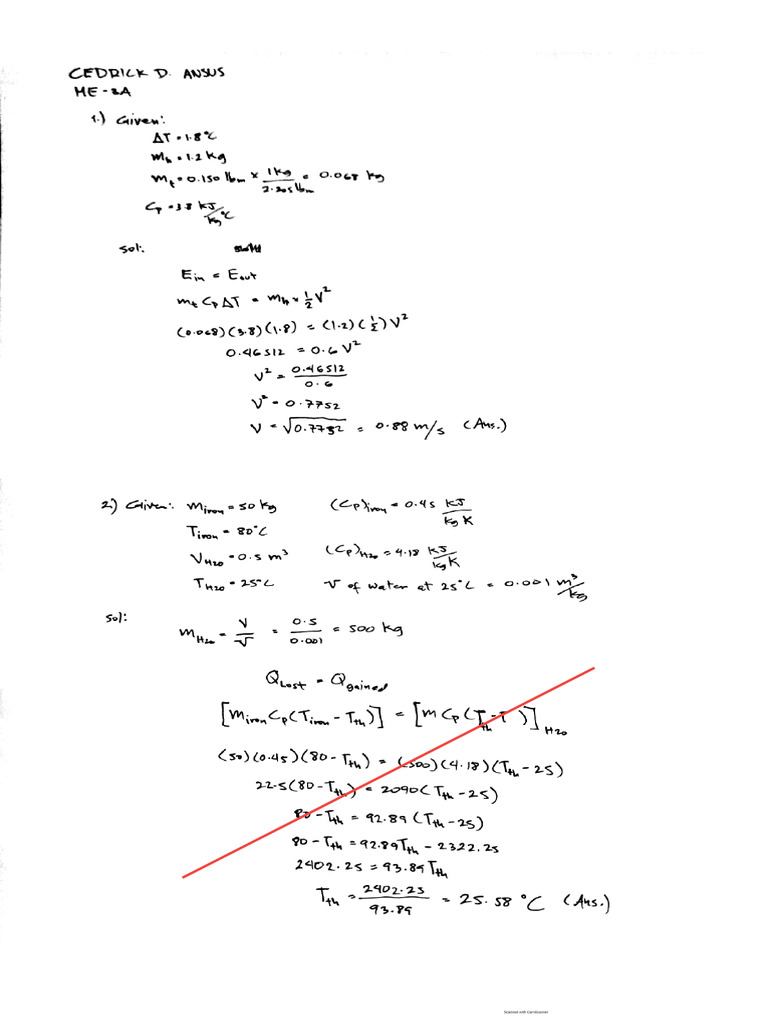 CEDRICK D. ANSUS
ME-2A
1.) Given:
ΔT = 1.8°C
m_h = 1.2 kg
m_t = 0.150 lbm × 1 kg / 2.205 lbm = 0.068 kg
C_p = 3.8 kJ/kg°C
Sol:
E_in = E_out
m_t C_p ΔT = m_h × 1/2 V²
(0.068)(3.8)(1.8) = (1.2)(1/2) V²
0.46512 = 0.6 V²
V² = 0.46512 / 0.6
V² = 0.7752
V = √0.7752 = 0.88 m/s (Ans.)
2.) Given: m_iron = 50 kg (C_p)_iron = 0.45 kJ/kg K
T_iron = 80°C
V_H2O = 0.5 m³ (C_p)_H2O = 4.18 kJ/kg K
T_H2O = 25°C v of water at 25°C = 0.001 m³/kg
Sol:
m_H2O = V/v = 0.5/0.001 = 500 kg
Q_Lost = Q_gained
[m_iron C_p (T_iron - T_th)] = [m C_p (T_th - T)]_H2O
(50)(0.45)(80 - T_th) = (500)(4.18)(T_th - 25)
22.5(80 - T_th) = 2090(T_th - 25)
80 - T_th = 92.89 (T_th - 25)
80 - T_th = 92.89 T_th - 2322.25
2402.25 = 93.89 T_th
T_th = 2402.25 / 93.89 = 25.58 °C (Ans.)
Scanned with CamScanner